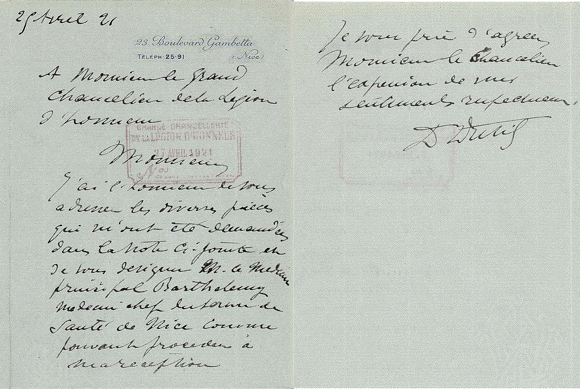 25 Avril 21
23 Boulevard Gambetta
(Nice)
TÉLÉPH. 25-91
A Monsieur le Grand
Chancelier de la Légion
d'honneur
GRANDE CHANCELLERIE
DE LA LÉGION D'HONNEUR
27 AVRIL 1921
Monsieur
J'ai l'honneur de vous
adresser les diverses pièces
qui m'ont été demandées
dans la note ci-jointe et
de vous designer M. le Medecin
principal Barthelemy
medecin chef du service de
Santé de Nice comme
pouvant proceder à
ma reception
Je vous prie d'agreer
Monsieur le Chancelier
l'expression de mes
sentiments respectueux